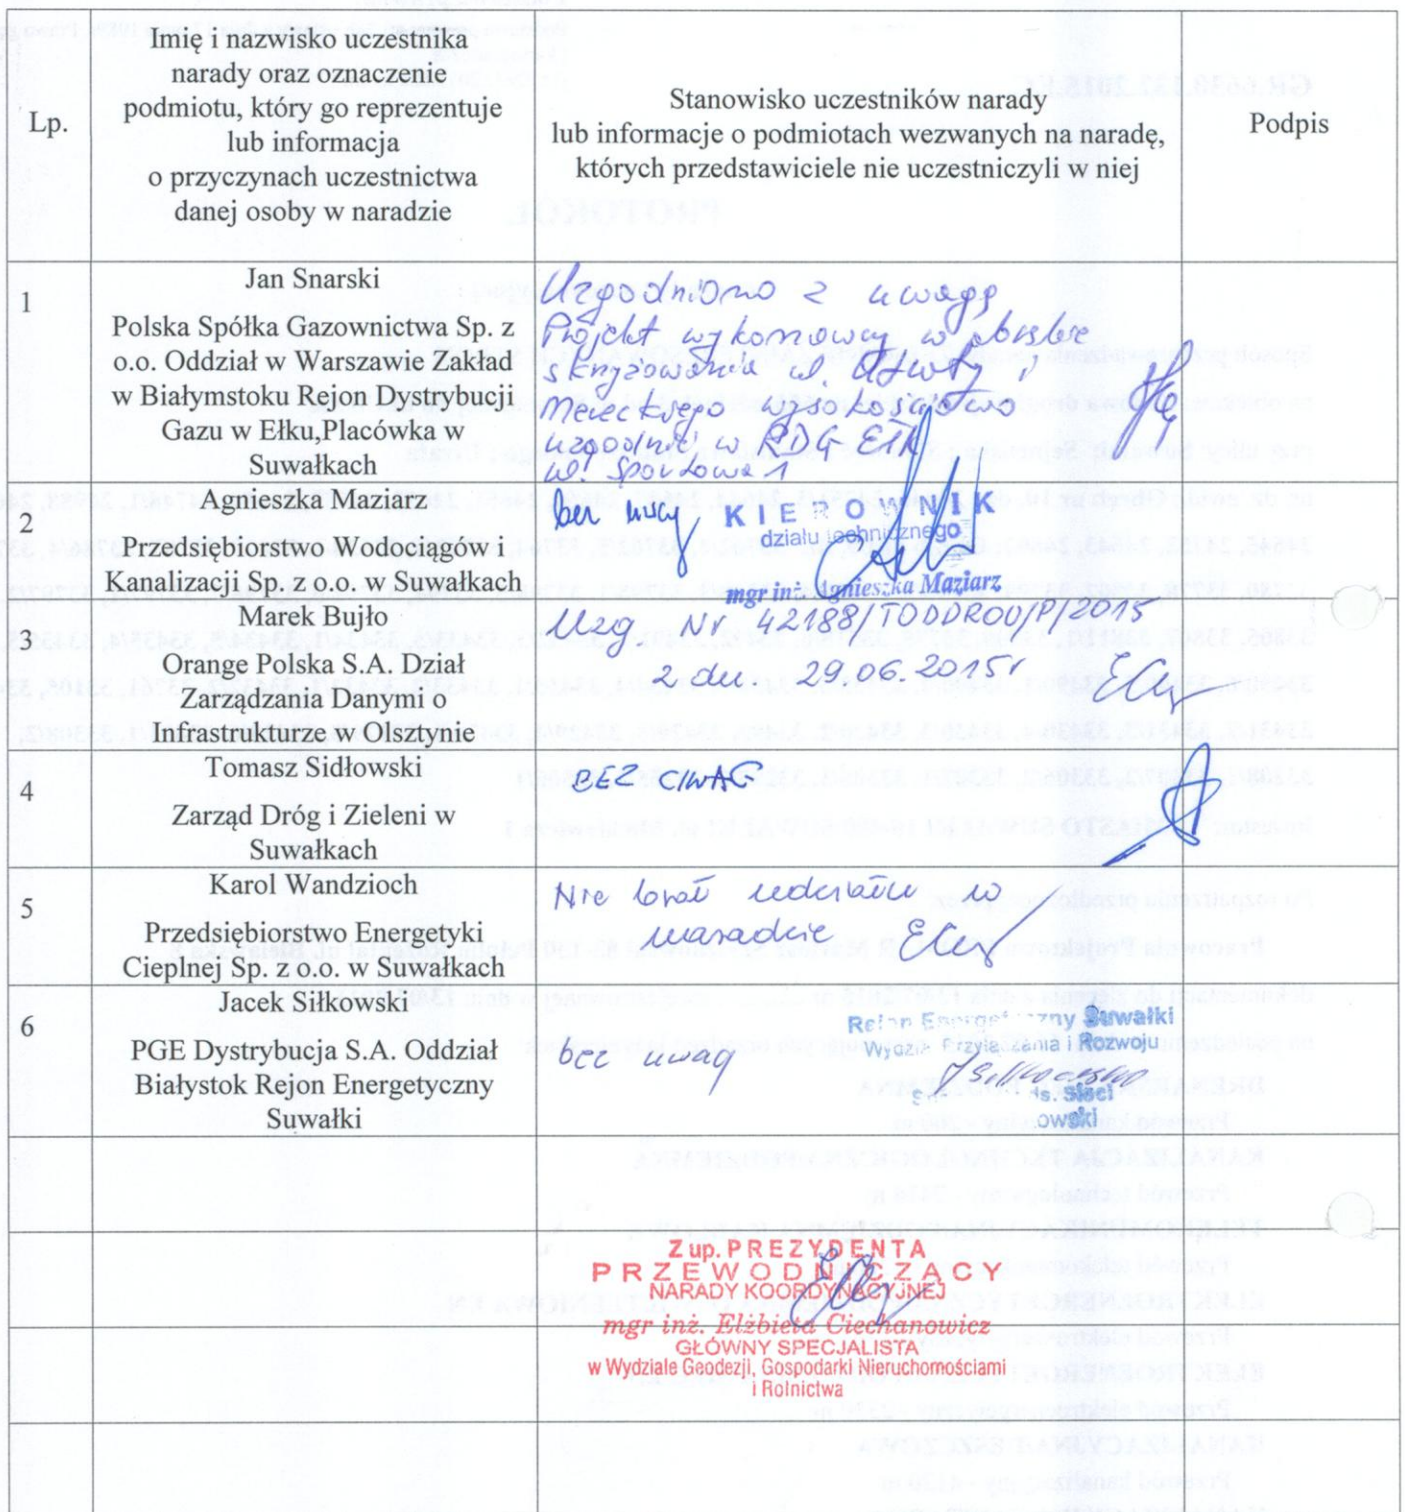 Lp.
Imię i nazwisko uczestnika
narady oraz oznaczenie
podmiotu, który go reprezentuje
lub informacja
o przyczynach uczestnictwa
danej osoby w naradzie
Stanowisko uczestników narady
lub informacje o podmiotach wezwanych na naradę,
których przedstawiciele nie uczestniczyli w niej
Podpis
1
Jan Snarski
Polska Spółka Gazownictwa Sp. z
o.o. Oddział w Warszawie Zakład
w Białymstoku Rejon Dystrybucji
Gazu w Ełku,Placówka w
Suwałkach
Uzgodniono z uwagą
Projekt wykonawczy w obrębie
skrzyżowania ul. i
wysokościowo
uzgodnić w RDG Ełk
ul. Sportowa 1
2
Agnieszka Maziarz
Przedsiębiorstwo Wodociągów i
Kanalizacji Sp. z o.o. w Suwałkach
bez uwag
KIEROWNIK
działu technicznego
mgr inż. Agnieszka Maziarz
3
Marek Bujło
Orange Polska S.A. Dział
Zarządzania Danymi o
Infrastrukturze w Olsztynie
Uzg. Nr 42188/TODDROU/P/2015
z dn. 29.06.2015r
4
Tomasz Sidłowski
Zarząd Dróg i Zieleni w
Suwałkach
BEZ UWAG
5
Karol Wandzioch
Przedsiębiorstwo Energetyki
Cieplnej Sp. z o.o. w Suwałkach
Nie brał udziału w
naradzie
6
Jacek Siłkowski
PGE Dystrybucja S.A. Oddział
Białystok Rejon Energetyczny
Suwałki
bez uwag
Rejon Energetyczny Suwałki
Wydział Przyłączania i Rozwoju
ds. Sieci
owski
Z up. PREZYDENTA
PRZEWODNICZĄCY
NARADY KOORDYNACYJNEJ
mgr inż. Elżbieta Ciechanowicz
GŁÓWNY SPECJALISTA
w Wydziale Geodezji, Gospodarki Nieruchomościami
i Rolnictwa